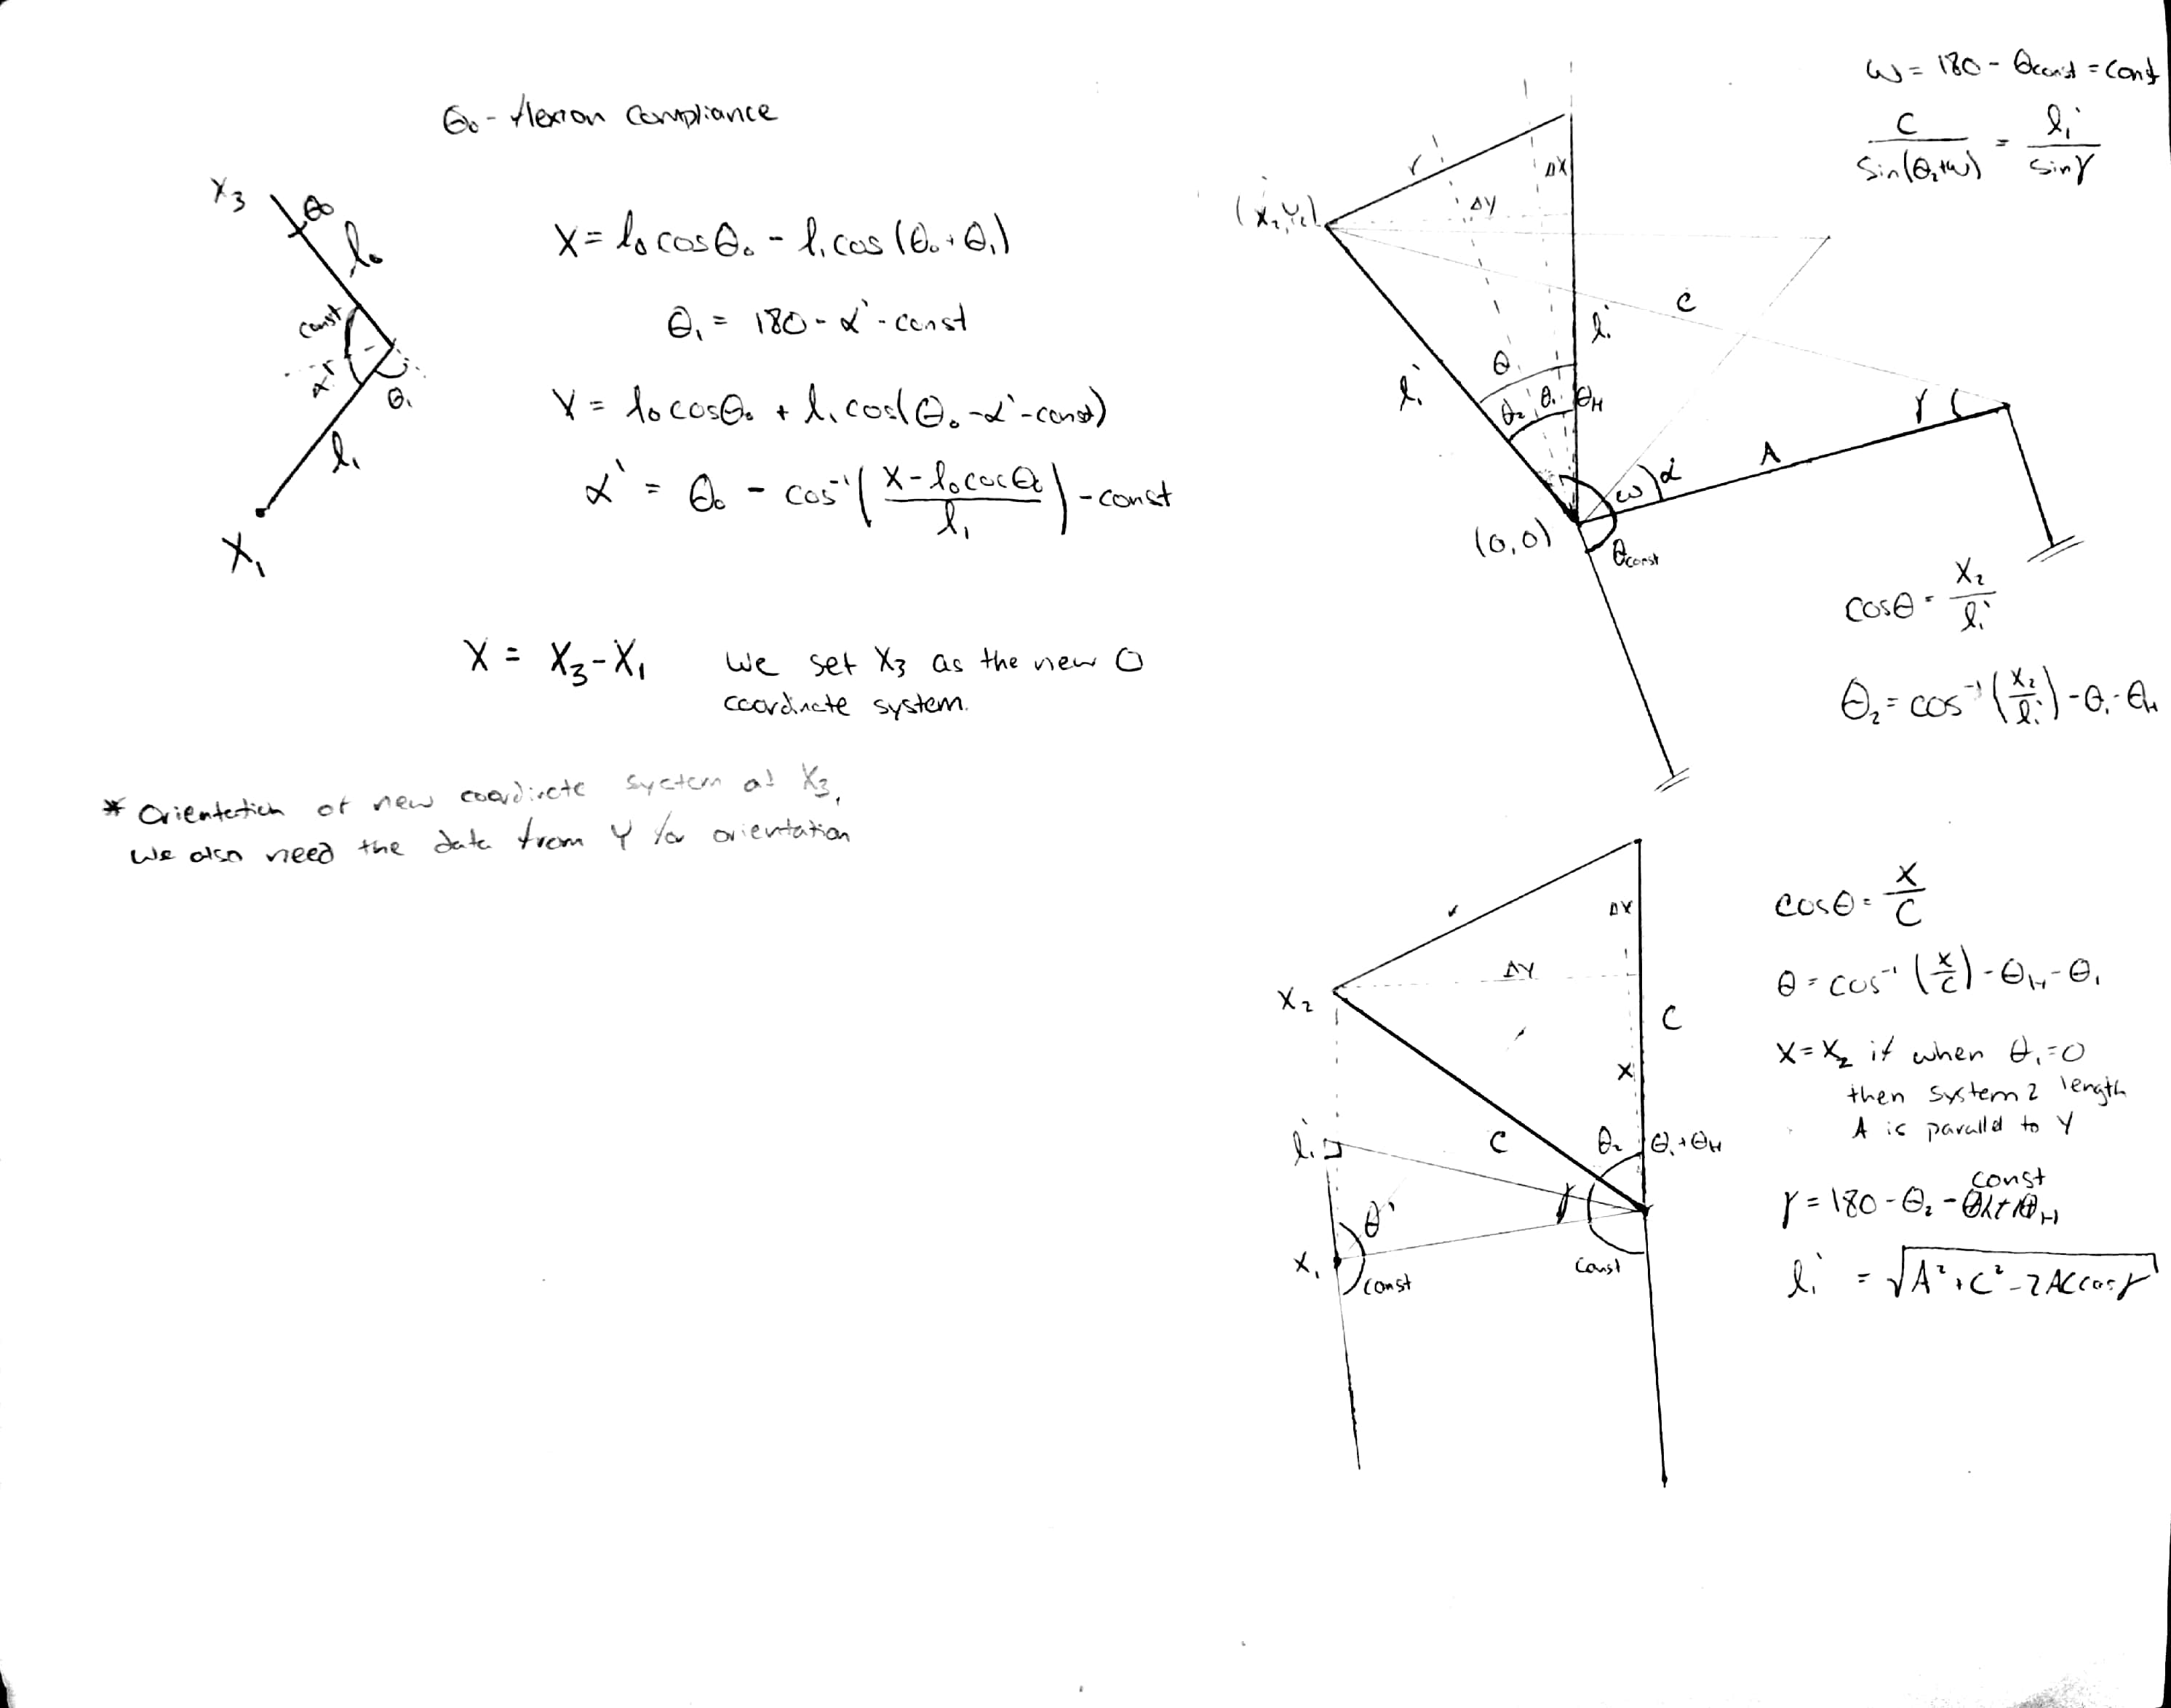 θ₀ - flexion compliance
X₃
θ₀
l₀
const
α'
θ₁
l₁
X₁
X = l₀ cosθ₀ - l₁ cos(θ₀+θ₁)
θ₁ = 180 - α' - const
X = l₀ cosθ₀ + l₁ cos(θ₀-α'-const)
α' = θ₀ - cos⁻¹( (X - l₀cosθ₀) / l₁ ) - const
X = X₃-X₁ we set X₃ as the new 0
coordinate system.
* Orientation of new coordinate system at X₃,
we also need the data from Y for orientation
ω = 180 - θconst = const
C / sin(θ₂+ω) = lᵢ / sinγ
r
ΔX
(X₂,Y₂)
ΔY
C
lᵢ
θ
lᵢ
θ₂ θ₁ θH
γ
A
ω α
(0,0)
θconst
cosθ = X₂ / lᵢ
θ₂ = cos⁻¹(X₂/lᵢ) - θ₁ - θH
r
ΔX
ΔY
X₂
C
X
C
θ₂ θ₁+θH
lᵢ
γ
θ'
X₁
const
const
cosθ = X / C
θ = cos⁻¹(X/C) - θH - θ₁
X = X₂ if when θ₁=0
then system 2 length
A is parallel to Y
const
γ = 180 - θ₂ -
lᵢ = √(A² + C² - 2ACcosγ)